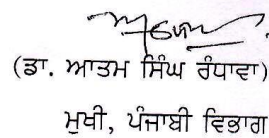 (ਡਾ. ਆਤਮ ਸਿੰਘ ਰੰਧਾਵਾ)
ਮੁਖੀ, ਪੰਜਾਬੀ ਵਿਭਾਗ